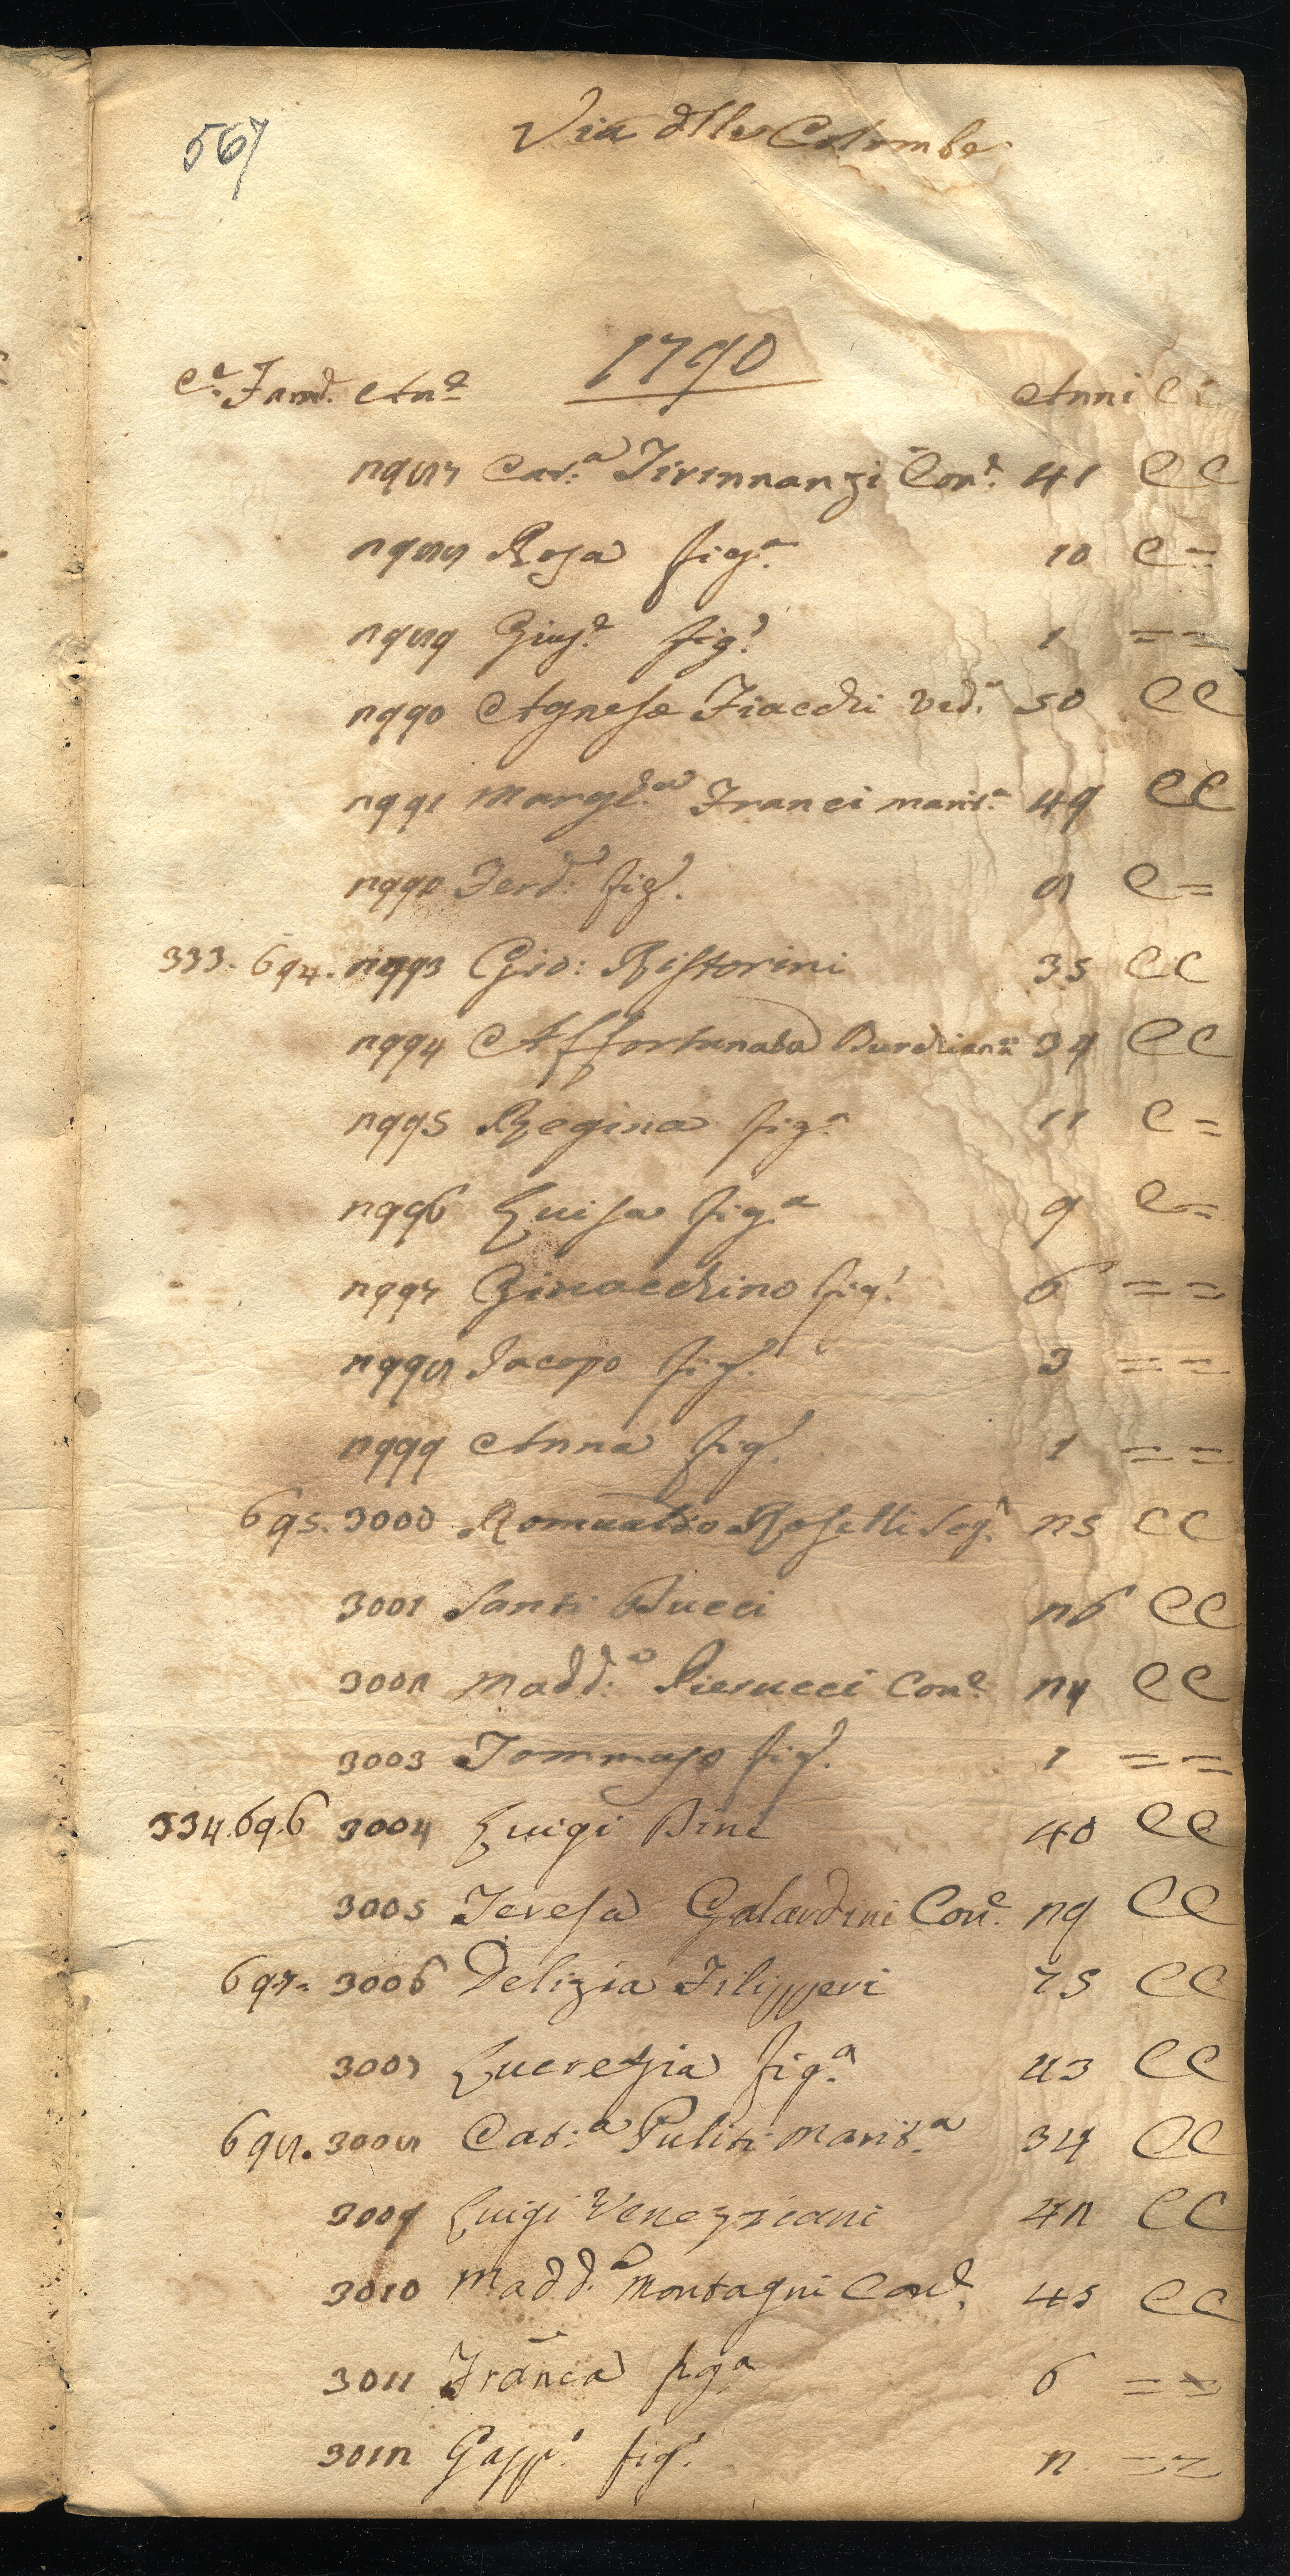 567
Via dlle Colombe
1790
Ce. Famd. An.e Anni CC
2987 Cat.a Tirinnanzi Con.e 41 CC
2988 Rosa fig.a 10 C=
2989 Gius.e fig.o 1 ==
2990 Agnese Fiacchi Ved.a 50 CC
2991 Margh.a Franci marit.a 49 CC
2992 Ferd.o fig.o 8 C=
333. 694. 2993 Gio: Ristorini 35 CC
2994 Affortunata Burchianti 34 CC
2995 Regina fig.a 11 C=
2996 Luisa fig.a 9 C=
2997 Giovacchino fig.o 6 ==
2998 Jacopo fig.o 3 ==
2999 Anna fig.a 1 ==
695. 3000 Romualdo Rosetti Seg.r 25 CC
3001 Santi Bucci 26 CC
3002 Madd.a Pierucci Con.e 24 CC
3003 Tommaso fig.o 1 ==
334. 696 3004 Luigi Bini 40 CC
3005 Teresa Galardini Con.e 29 CC
697. 3006 Delizia Filipperi 75 CC
3007 Lucrezia fig.a 43 CC
698. 3008 Cat.a Puliti Marit.a 34 CC
3009 Luigi Veneziani 42 CC
3010 Madd.a Montagni Con.e 45 CC
3011 Franca fig.a 6 ==
3012 Gasp.o fig.o 2 ==